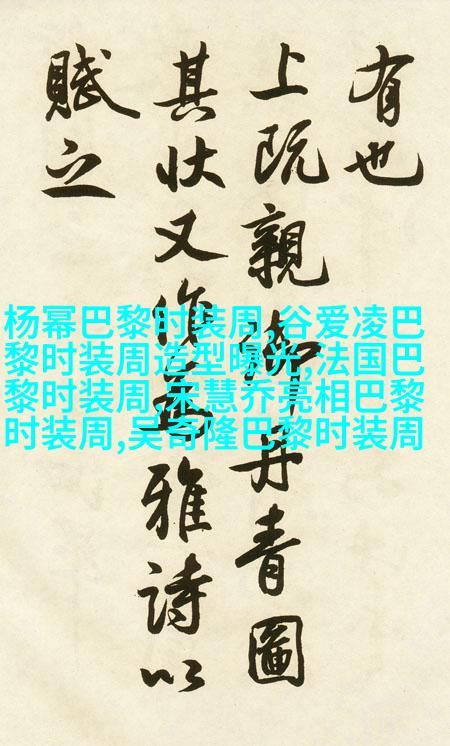 有也
上既親御丹青圖
其状又作為雅詩以
賦之
杨幂巴黎时装周,谷爱凌巴
黎时装周造型曝光,法国巴
黎时装周,宋慧乔亮相巴黎
时装周,吴奇隆巴黎时装周